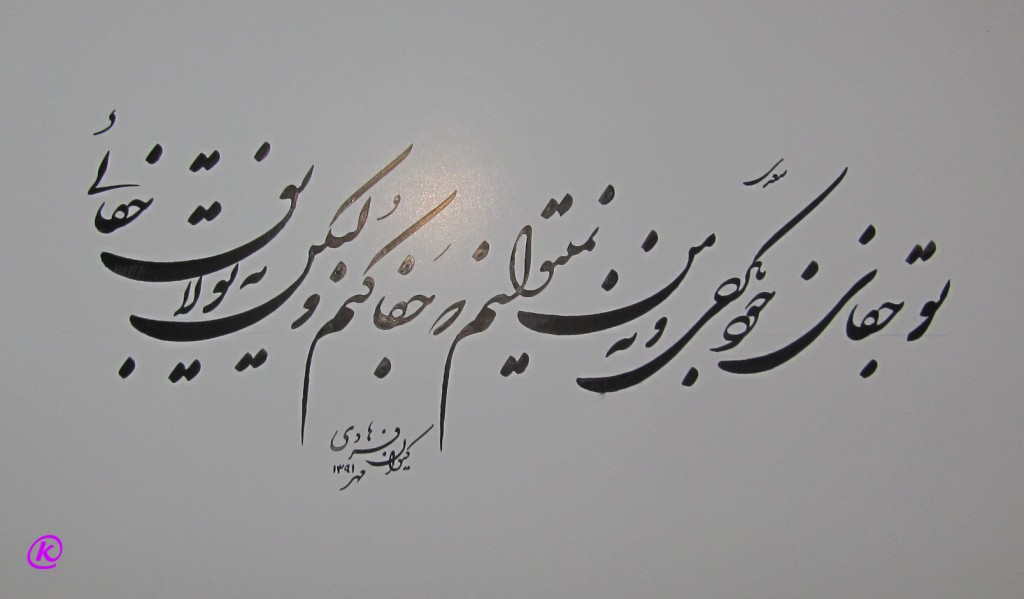 سعدی
تو جفای خود بکردی و نه من نمیتوانم که جفا کنم ولیکن نه تو لایق جفائی
کیوان فرهادی
مهر ۱۳۹۱
K